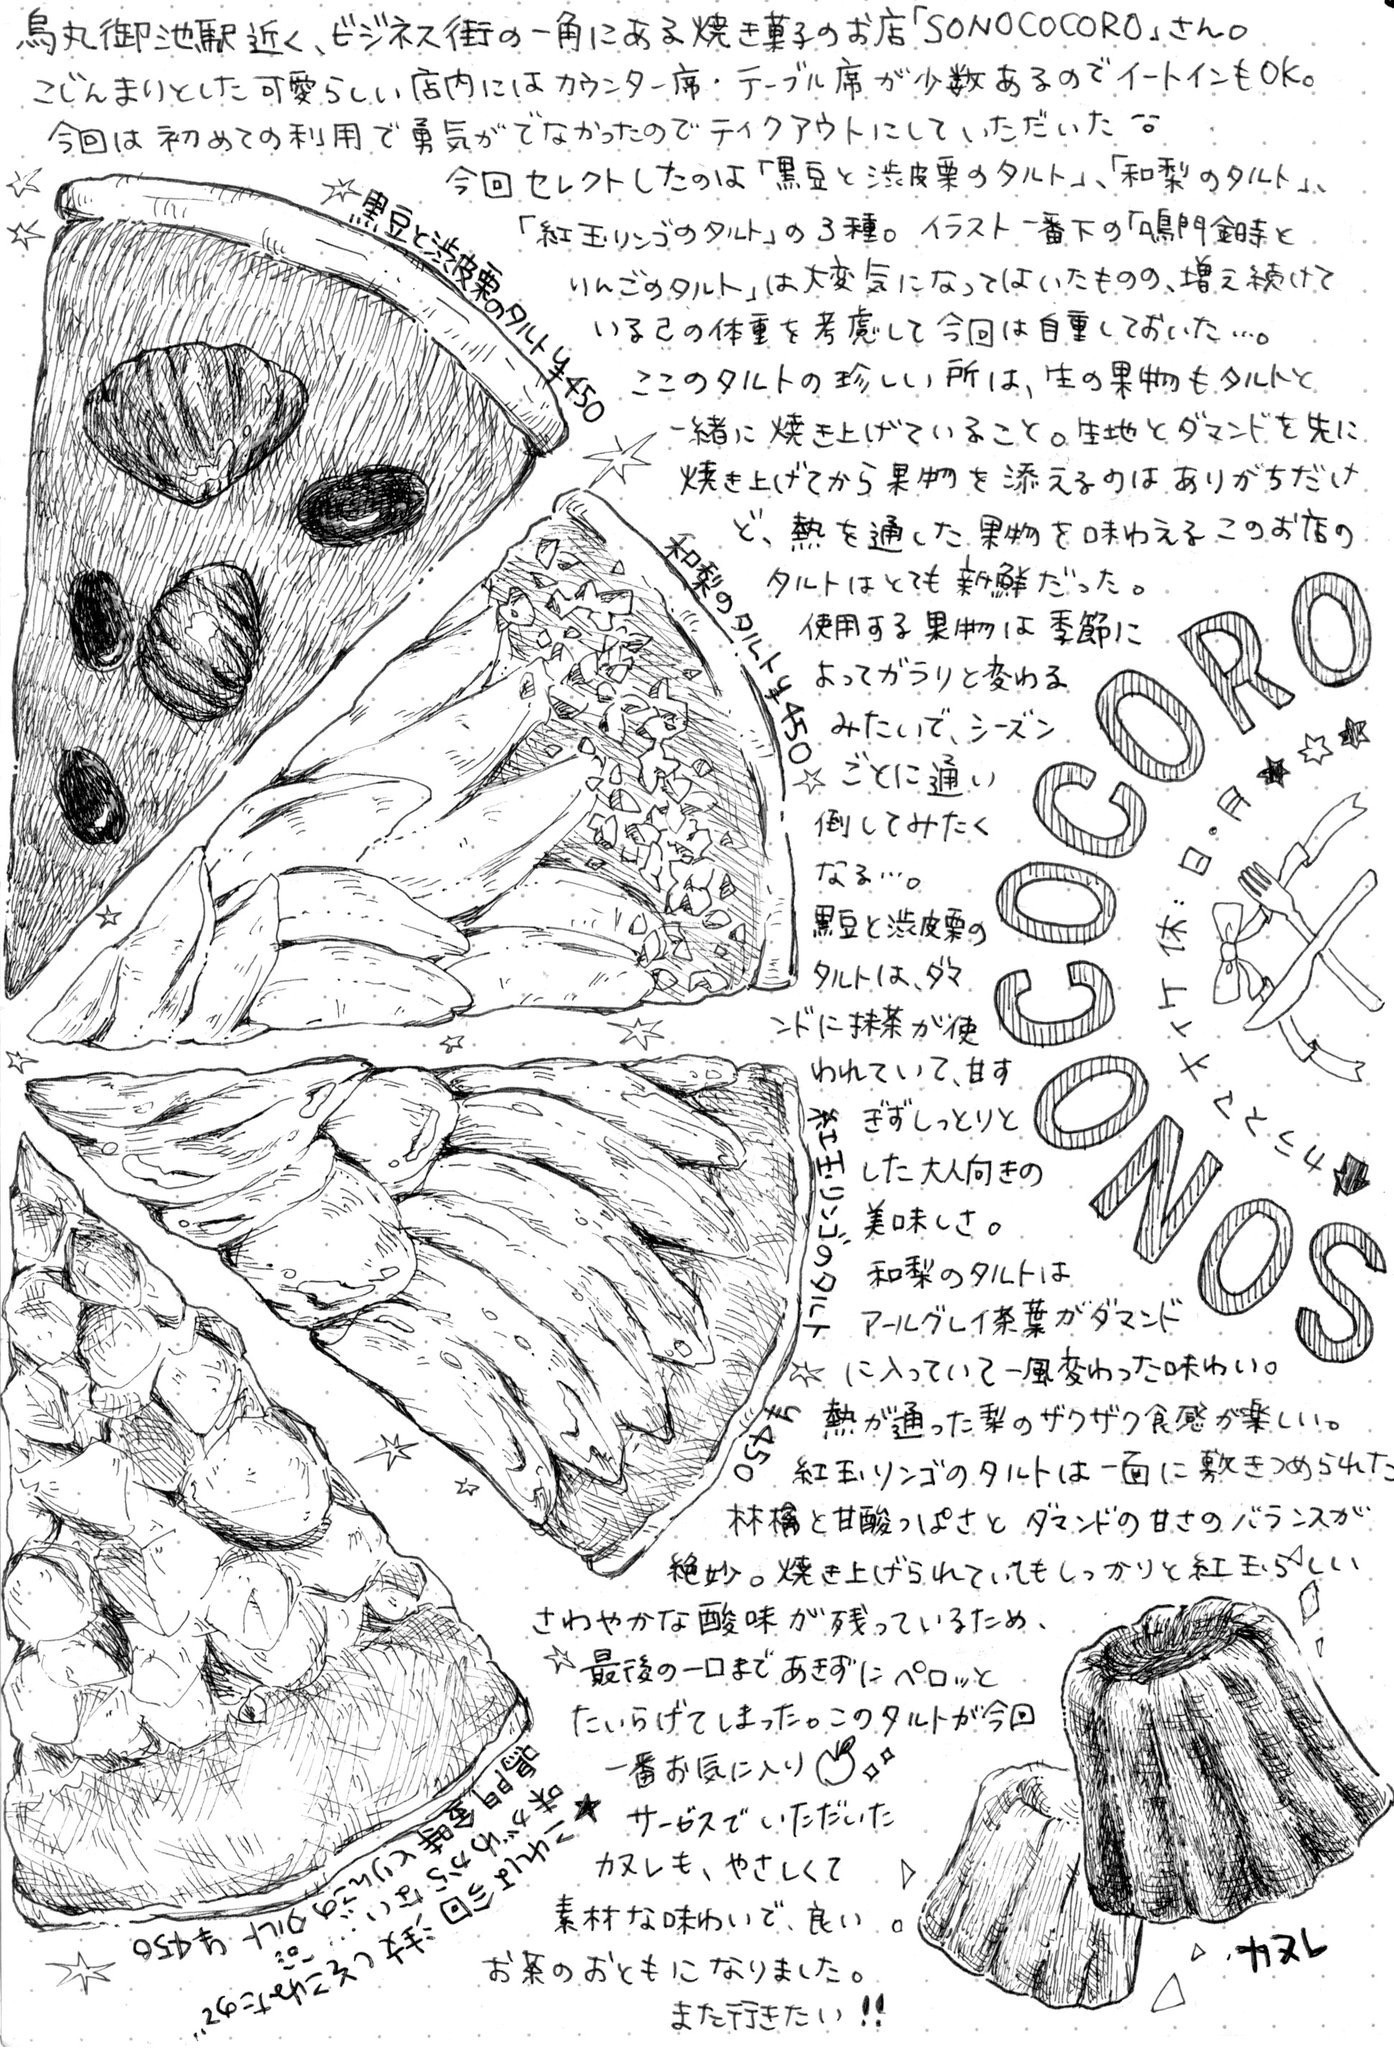 烏丸御池駅近く、ビジネス街の一角にある焼き菓子のお店「SONOCOCORO」さん。
こじんまりとした可愛らしい店内にはカウンター席・テーブル席が少数あるのでイートインもOK。
今回は初めての利用で勇気がでなかったのでテイクアウトにしていただいた
今回セレクトしたのは「黒豆と渋皮栗のタルト」、「和梨のタルト」、
「紅玉リンゴのタルト」の3種。イラスト一番下の「鳴門金時と
りんごのタルト」は大変気になってはいたものの、増え続けて
いる己の体重を考慮して今回は自重しておいた…。
ここのタルトの珍しい所は、生の果物もタルトと
一緒に焼き上げていること。生地とダマンドを先に
焼き上げてから果物を添えるのはありがちだけ
ど、熱を通した果物を味わえるこのお店の
タルトはとても新鮮だった。
使用する果物は季節に
よってガラリと変わる
みたいで、シーズン
ごとに通い
倒してみたく
なる…。
黒豆と渋皮栗の
タルトは、ダマ
ンドに抹茶が使
われていて、甘す
ぎずしっとりと
した大人向きの
美味しさ。
和梨のタルトは
アールグレイ茶葉がダマンド
に入っていて一風変わった味わい。
熱が通った梨のザクザク食感が楽しい。
紅玉リンゴのタルトは一面に敷きつめられた
林檎と甘酸っぱさとダマンドの甘さのバランスが
絶妙。焼き上げられていてもしっかりと紅玉らしい
さわやかな酸味が残っているため、
最後の一口まであきずにペロッと
たいらげてしまった。このタルトが今回
一番お気に入り
サービスでいただいた
カヌレも、やさしくて
素材な味わいで、良い
お茶のおともになりました。
また行きたい!!
黒豆と渋皮栗のタルト ¥450
和梨のタルト ¥450
紅玉リンゴのタルト ¥450
鳴門金時とりんごのタルト ¥450
これは今回注文しそこねたので
味がわからない…
SONOCOCORO
カラスマオイケ
休:日・月
カヌレ